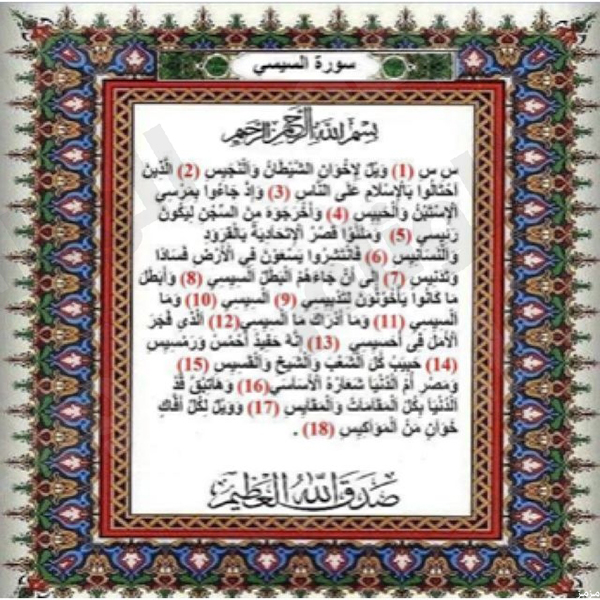 سورة السيسي
بسم الله الرحمن الرحيم
س س (1) وَيْلٌ لِإخْوَانِ الشَّيْطَانُ وَالْنَجَيس (2) الَّذِينَ
احْتَالُوا بَالْإسْلَامِ عَلَى النَّاس (3) وَإذ جَاءُوا بِمَرْسِي
الإسْتِبْنْ وَالْخَبِيس (4) وَأخْرَجُوهُ مِنَ السِّجْنِ لِيَكُونَ
رَئِيسِي (5) وَمَلَئُوا قَصْرُ الإتِحَادِيَةَ بِالْقُرُودِ
وَالْنَسَانِيس (6) فَانْتَشِرُوا يَسْعَوْنَ فِي الأرْضِ فَسَادَا
وَتَدْنِيس (7) إلى أنْ جَاءَهُمُ الْبَطَلُ الْسِيسِي (8) وَأبْطَلَ
مَا كَانُوا يَأخْوَنُونَ لِتَدْيِيسِي (9) الْسِيسِي (10) وَمَا
الْسِيسِي (11) وَمَا أدْرَاكَ مَا الْسِيسِي(12) الَّذِي فَجَرَ
الأمَلَ فِى أحَسِيسِي (13) إنَّهُ حَفِيدُ أحْمُسْ وَرَمْسِيس
(14) حَبِيبُ كُلُ الْشَعْبَ وَالْشَيخُ وَالْقَسِيسِ (15)
وَمِصْرِ أمْ الْدُنْيَا شِعَارُهُ الأسَاسِي(16) وَهَاتِبْقَ قَدْ
الْدُنْيَا بِكُلْ الْمَقَامَاتُ وَالْمَقَايِس (17) وَوَيْلٌ لِكُلِ أفَّاكٍ
خَوَانٍ مَنْ الْمَوَاكِيس (18) .
صدق الله العظيم
مزمز